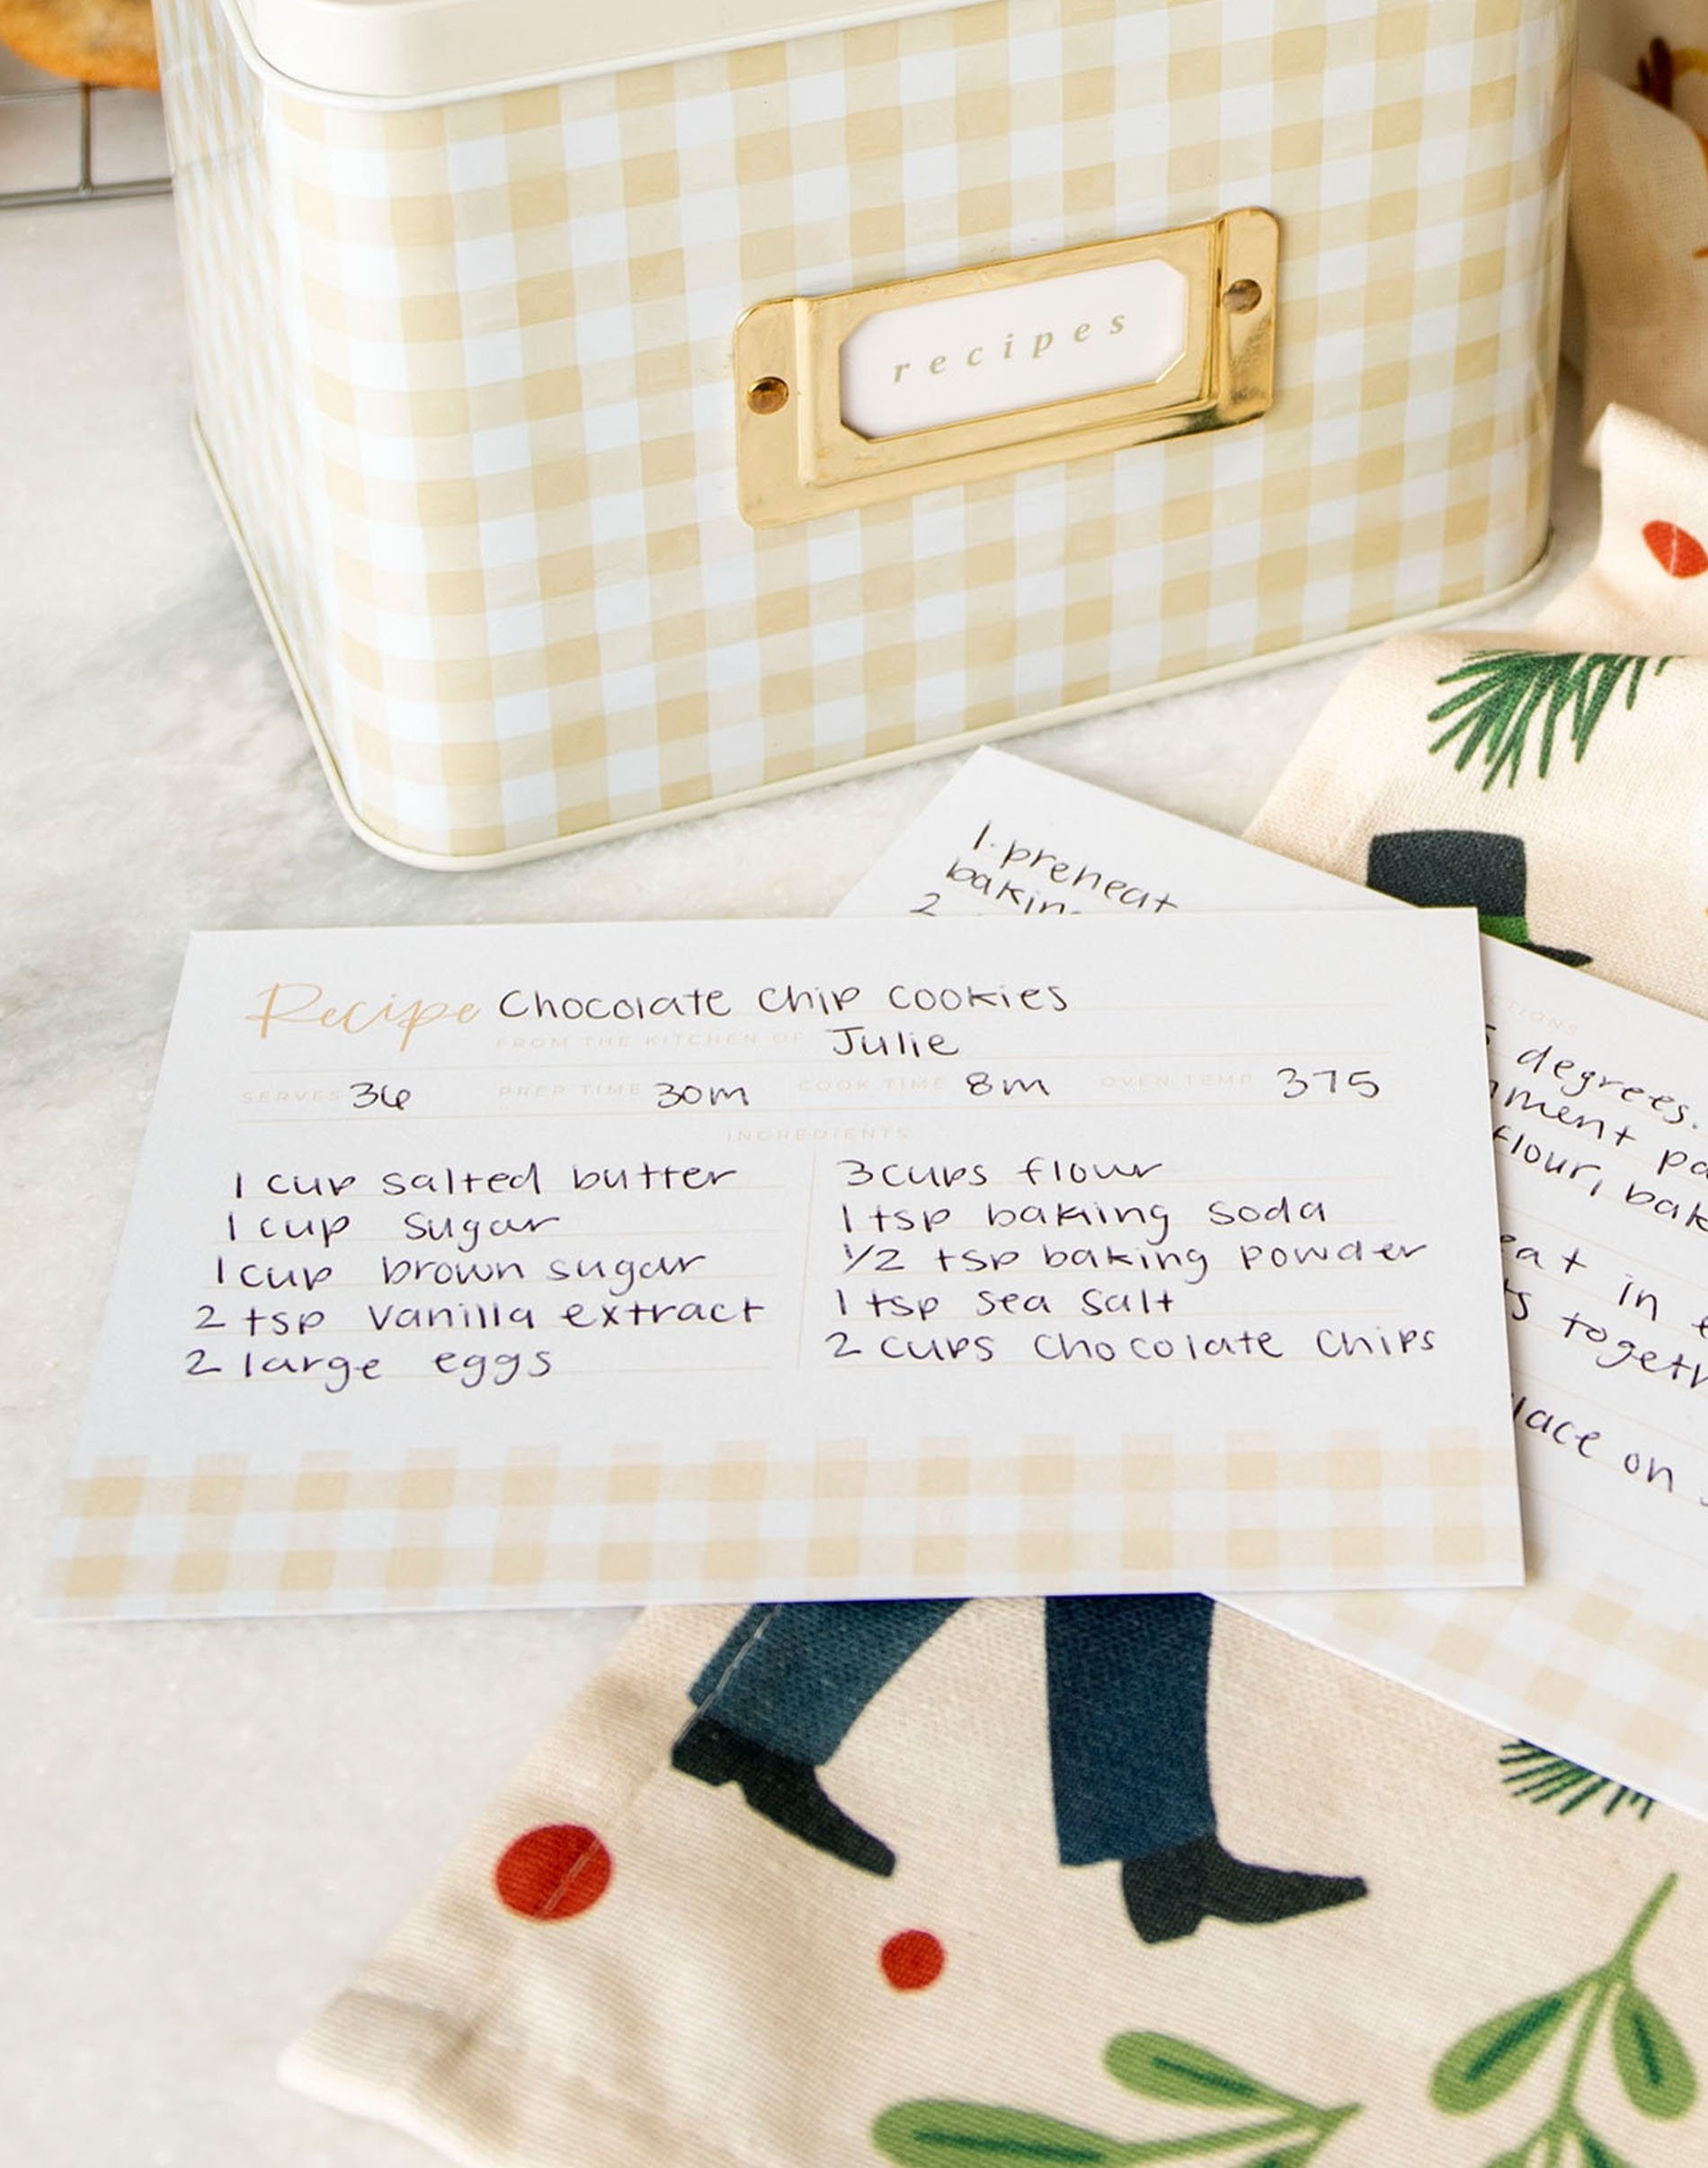 recipes
1. preheat
bakin
2
Recipe Chocolate Chip Cookies
FROM THE KITCHEN OF Julie
SERVES 36 PREP TIME 30m COOK TIME 8m OVEN TEMP 375
INGREDIENTS
1 cup salted butter
1 cup sugar
1 cup brown sugar
2 tsp vanilla extract
2 large eggs
3 cups flour
1 tsp baking soda
1/2 tsp baking powder
1 tsp sea salt
2 cups chocolate chips
degrees.
flour, bak
in
togeth
on